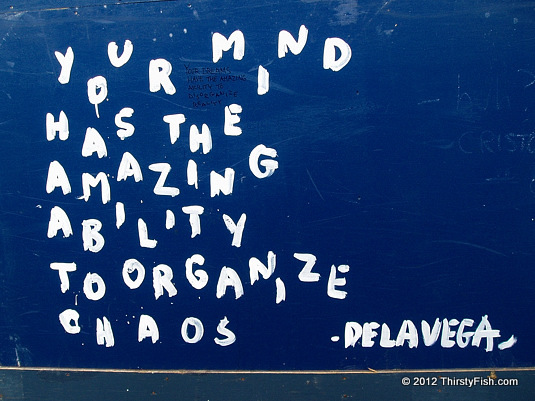 YOUR MIND
HAS THE
AMAZING
ABILITY
TO ORGANIZE
CHAOS
-DELAVEGA
YOUR DREAMS
HAVE THE AMAZING
ABILITY TO
DISORGANIZE
REALITY
© 2012 ThirstyFish.com